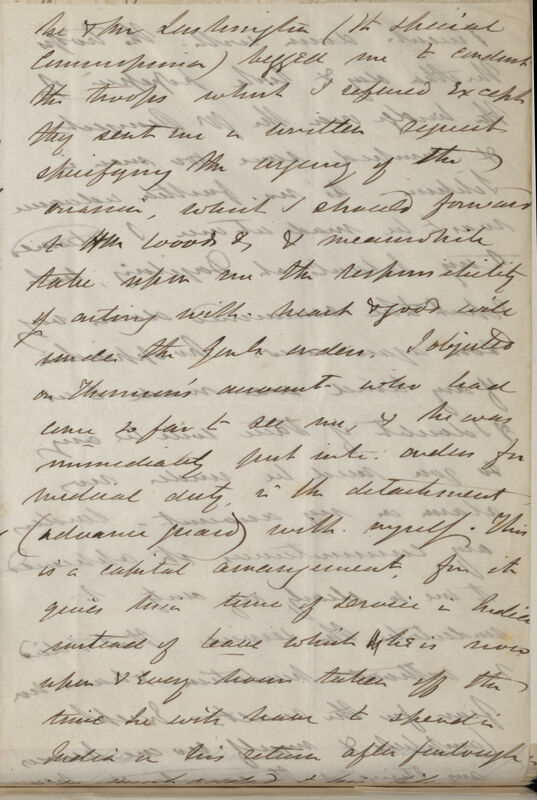 he & Mr Lushington (the special
Commissioner) begged me to conduct
the troops which I refused except
they sent me a written request
specifying the urgency of the
occasion, which I should forward
to the Woods &c & meanwhile
take upon me the responsibility
of acting with heart & good will
under the Genls orders. I objected
on Thomson's account who had
come so far to see me, & he was
immediately put into orders for
medical duty in the detachment
(advance guard) with myself. This
is a capital arrangement, for it
gives him time of service in India
instead of leave which he is now
upon & every hours taken off the
time he will have to spend in
India on his return after furlough